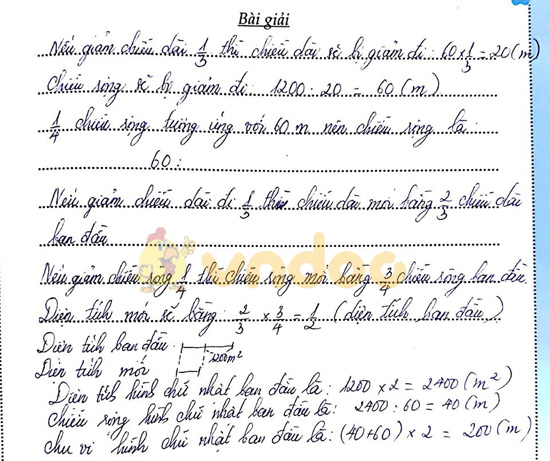 Bài giải
Nếu giảm chiều dài 1/3 thì chiều dài sẽ bị giảm đi: 60 x 1/3 = 20 (m)
Chiều rộng sẽ bị giảm đi: 1200 : 20 = 60 (m)
1/4 chiều rộng tương ứng với 60 m nên chiều rộng là:
60 :
Nếu giảm chiều dài đi 1/3 thì chiều dài mới bằng 2/3 chiều dài
ban đầu
Nếu giảm chiều rộng 1/4 thì chiều rộng mới bằng 3/4 chiều rộng ban đầu.
Diện tích mới sẽ bằng: 2/3 x 3/4 = 1/2 (diện tích ban đầu)
Diện tích ban đầu
1200m²
Diện tích mới
Diện tích hình chữ nhật ban đầu là: 1200 x 2 = 2400 (m²)
Chiều rộng hình chữ nhật ban đầu là: 2400 : 60 = 40 (m)
Chu vi hình chữ nhật ban đầu là: (40+60) x 2 = 200 (m)
vndoc